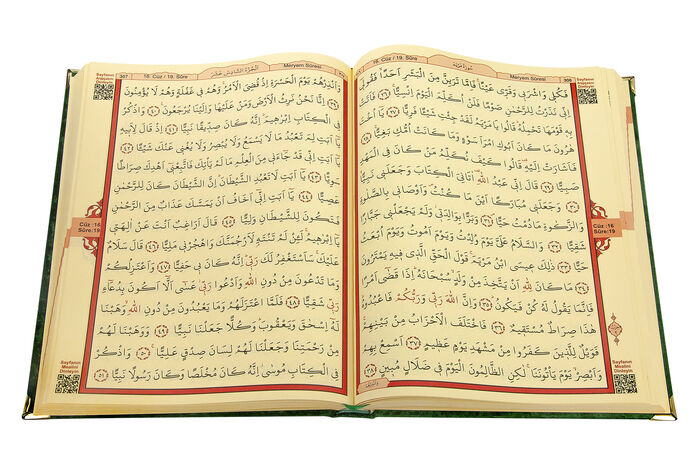 سُورَةُ مَرْيَمَ
16. Cüz / 19. Sûre
Meryem Sûresi
306
فَكُلِي وَاشْرَبِي وَقَرِّي عَيْنًا فَاِمَّا تَرَيِنَّ مِنَ الْبَشَرِ اَحَدًا فَقُولِي
اِنِّي نَذَرْتُ لِلرَّحْمٰنِ صَوْمًا فَلَنْ اُكَلِّمَ الْيَوْمَ اِنْسِيًّا ﴿٢٦﴾ فَاَتَتْ
بِهِ قَوْمَهَا تَحْمِلُهُ قَالُوا يَا مَرْيَمُ لَقَدْ جِئْتِ شَيْئًا فَرِيًّا ﴿٢٧﴾ يَا اُخْتَ
هٰرُونَ مَا كَانَ اَبُوكِ امْرَاَ سَوْءٍ وَمَا كَانَتْ اُمُّكِ بَغِيًّا ﴿٢٨﴾
فَاَشَارَتْ اِلَيْهِ قَالُوا كَيْفَ نُكَلِّمُ مَنْ كَانَ فِي الْمَهْدِ
صَبِيًّا ﴿٢٩﴾ قَالَ اِنِّي عَبْدُ اللهِ اٰتَانِيَ الْكِتَابَ وَجَعَلَنِي نَبِيًّا
﴿٣٠﴾ وَجَعَلَنِي مُبَارَكًا اَيْنَ مَا كُنْتُ وَاَوْصَانِي بِالصَّلٰوةِ
وَالزَّكٰوةِ مَا دُمْتُ حَيًّا ﴿٣١﴾ وَبَرًّا بِوَالِدَتِي وَلَمْ يَجْعَلْنِي جَبَّارًا
شَقِيًّا ﴿٣٢﴾ وَالسَّلَامُ عَلَيَّ يَوْمَ وُلِدْتُ وَيَوْمَ اَمُوتُ وَيَوْمَ اُبْعَثُ
حَيًّا ﴿٣٣﴾ ذٰلِكَ عِيسَى ابْنُ مَرْيَمَ قَوْلَ الْحَقِّ الَّذِي فِيهِ يَمْتَرُونَ
﴿٣٤﴾ مَا كَانَ لِلّٰهِ اَنْ يَتَّخِذَ مِنْ وَلَدٍ سُبْحَانَهُ اِذَا قَضٰى اَمْرًا
فَاِنَّمَا يَقُولُ لَهُ كُنْ فَيَكُونُ ﴿٣٥﴾ وَاِنَّ اللهَ رَبِّي وَرَبُّكُمْ فَاعْبُدُوهُ
هٰذَا صِرَاطٌ مُسْتَقِيمٌ ﴿٣٦﴾ فَاخْتَلَفَ الْاَحْزَابُ مِنْ بَيْنِهِمْ
فَوَيْلٌ لِلَّذِينَ كَفَرُوا مِنْ مَشْهَدِ يَوْمٍ عَظِيمٍ ﴿٣٧﴾ اَسْمِعْ بِهِمْ
وَاَبْصِرْ يَوْمَ يَأْتُونَنَا لٰكِنِ الظَّالِمُونَ الْيَوْمَ فِي ضَلَالٍ مُبِينٍ ﴿٣٨﴾
Sayfanın Arapçasını Dinleyin
Cüz :16
Sûre:19
Sayfanın Mealini Dinleyin
307
16. Cüz / 19. Sûre
اَلْجُزْءُ السَّادِسَ عَشَرَ
Meryem Sûresi
وَاَنْذِرْهُمْ يَوْمَ الْحَسْرَةِ اِذْ قُضِيَ الْاَمْرُ وَهُمْ فِي غَفْلَةٍ وَهُمْ لَا يُؤْمِنُونَ
﴿٣٩﴾ اِنَّا نَحْنُ نَرِثُ الْاَرْضَ وَمَنْ عَلَيْهَا وَاِلَيْنَا يُرْجَعُونَ ﴿٤٠﴾ وَاذْكُرْ
فِي الْكِتَابِ اِبْرٰهِيمَ اِنَّهُ كَانَ صِدِّيقًا نَبِيًّا ﴿٤١﴾ اِذْ قَالَ لِاَبِيهِ
يَا اَبَتِ لِمَ تَعْبُدُ مَا لَا يَسْمَعُ وَلَا يُبْصِرُ وَلَا يُغْنِي عَنْكَ شَيْئًا ﴿٤٢﴾
يَا اَبَتِ اِنِّي قَدْ جَاءَنِي مِنَ الْعِلْمِ مَا لَمْ يَأْتِكَ فَاتَّبِعْنِي اَهْدِكَ صِرَاطًا
سَوِيًّا ﴿٤٣﴾ يَا اَبَتِ لَا تَعْبُدِ الشَّيْطَانَ اِنَّ الشَّيْطَانَ كَانَ لِلرَّحْمٰنِ
عَصِيًّا ﴿٤٤﴾ يَا اَبَتِ اِنِّي اَخَافُ اَنْ يَمَسَّكَ عَذَابٌ مِنَ الرَّحْمٰنِ
فَتَكُونَ لِلشَّيْطَانِ وَلِيًّا ﴿٤٥﴾ قَالَ اَرَاغِبٌ اَنْتَ عَنْ اٰلِهَتِي
يَا اِبْرٰهِيمُ لَئِنْ لَمْ تَنْتَهِ لَاَرْجُمَنَّكَ وَاهْجُرْنِي مَلِيًّا ﴿٤٦﴾ قَالَ سَلَامٌ
عَلَيْكَ سَاَسْتَغْفِرُ لَكَ رَبِّي اِنَّهُ كَانَ بِي حَفِيًّا ﴿٤٧﴾ وَاَعْتَزِلُكُمْ
وَمَا تَدْعُونَ مِنْ دُونِ اللهِ وَاَدْعُوا رَبِّي عَسٰى اَلَّا اَكُونَ بِدُعَاءِ
رَبِّي شَقِيًّا ﴿٤٨﴾ فَلَمَّا اعْتَزَلَهُمْ وَمَا يَعْبُدُونَ مِنْ دُونِ اللهِ وَهَبْنَا
لَهُ اِسْحٰقَ وَيَعْقُوبَ وَكُلًّا جَعَلْنَا نَبِيًّا ﴿٤٩﴾ وَوَهَبْنَا لَهُمْ
مِنْ رَحْمَتِنَا وَجَعَلْنَا لَهُمْ لِسَانَ صِدْقٍ عَلِيًّا ﴿٥٠﴾ وَاذْكُرْ
فِي الْكِتَابِ مُوسٰى اِنَّهُ كَانَ مُخْلَصًا وَكَانَ رَسُولًا نَبِيًّا ﴿٥١﴾
Sayfanın Arapçasını Dinleyin
Cüz :16
Sûre:19
Sayfanın Mealini Dinleyin